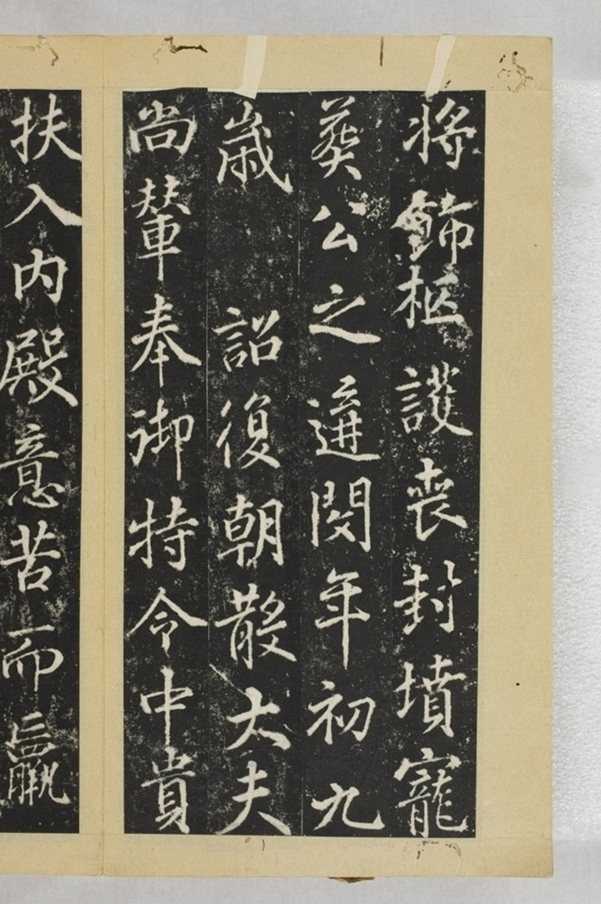 將飾柩護喪封墳寵
葬公之遘閔年初九
歲 詔復朝散大夫
尚輦奉御特令中貴
扶入內殿意苦而羸